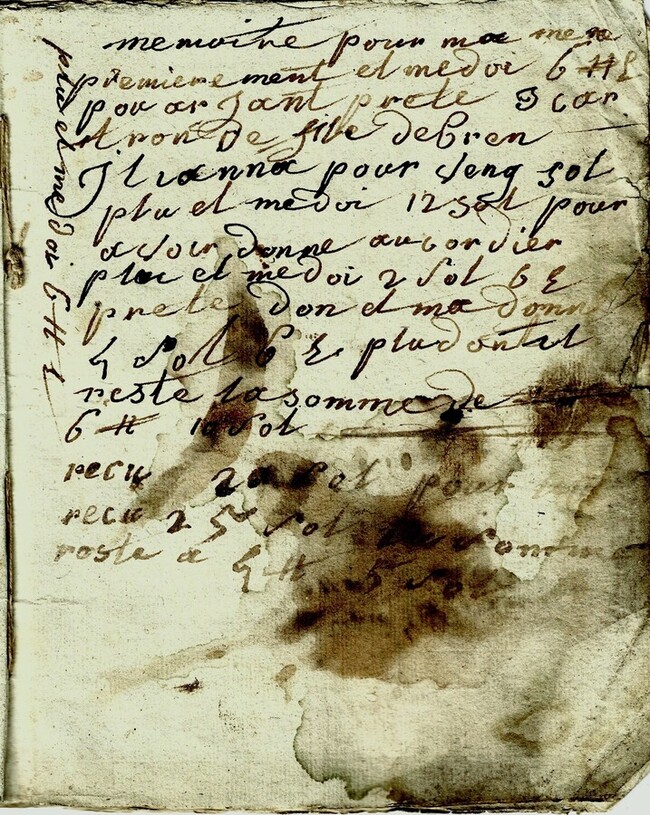 memoire pour ma mere
premierement el me doi 6 ## £
pouar jant prete 3 car
tron de file debren
Jl ianna pour veng sol
plu el me doi 12 sol pour
avoir donne au cordier
plu el me doi 2 sol 6 £
prete don el ma donn
4 sol 6 £ plu dont il
reste la somme de
6 ## 10 sol
recu 20 sol pour
recu 25 sol
reste a 4 ## 5 sol
plu el me doi 6 ## £